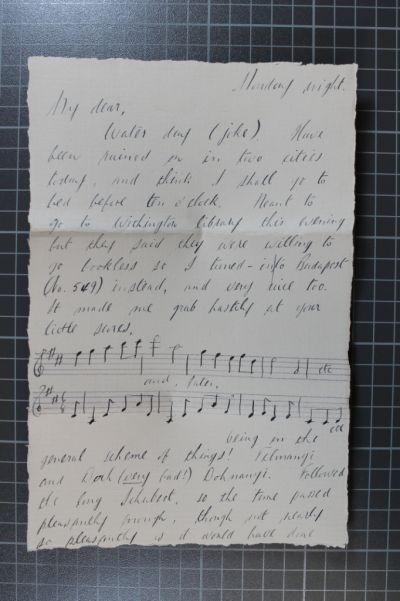 Monday night.
My dear,
Water day (joke). Have
been rained on in two cities
today, and think I shall go to
bed before ten o'clock. Meant to
go to Withington library this evening
but they said they were willing to
go bookless so I tuned-in to Budapest
(No. 549) instead, and very nice too.
It made me grab hastily at your
little scores,
etc
and, later,
etc
being in the
general scheme of things!
and Doh (very bad!) Dohnanyi. Followed
the long Schubert, so the time passed
pleasantly enough, though not nearly
so pleasantly as it would have done